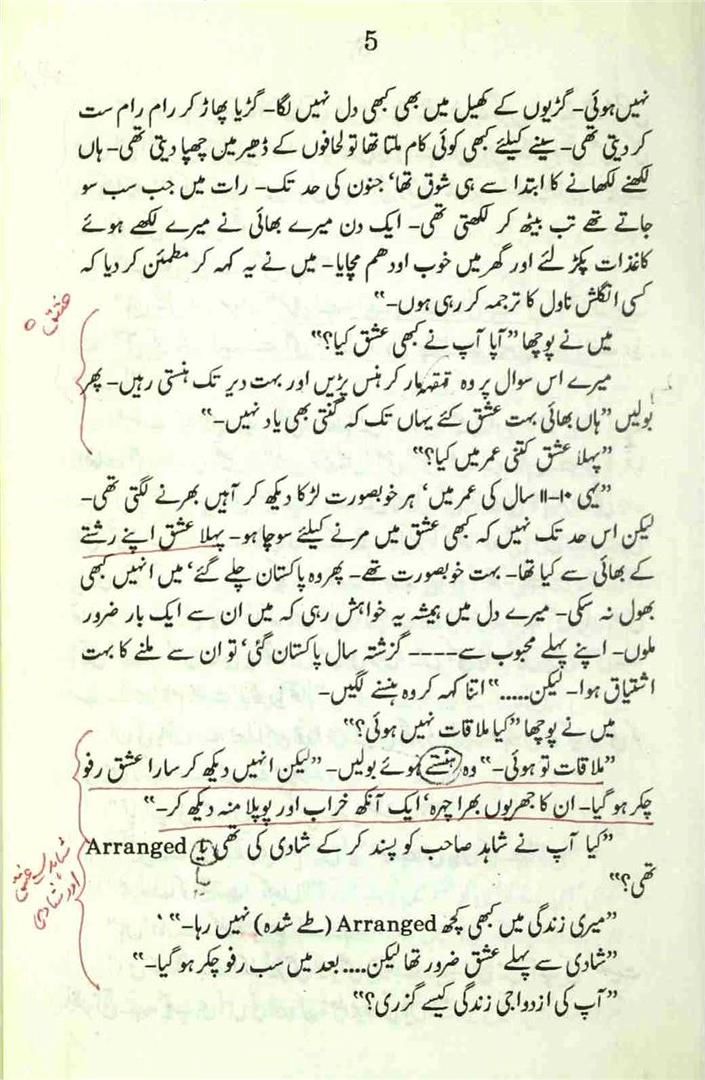 5
نہیں ہوئی۔ گڑیوں کے کھیل میں بھی کبھی دل نہیں لگا۔ گڑیا پھاڑ کر رام رام ست
کر دیتی تھی۔ سینے کیلئے کبھی کوئی کام ملتا تھا تو لحافوں کے ڈھیر میں چھپا دیتی تھی۔ ہاں
لکھنے لکھانے کا ابتدا سے ہی شوق تھا‘ جنون کی حد تک۔ رات میں جب سب سو
جاتے تھے تب بیٹھ کر لکھتی تھی۔ ایک دن میرے بھائی نے میرے لکھے ہوئے
کاغذات پکڑ لئے اور گھر میں خوب اودھم مچایا۔ میں نے یہ کہہ کر مطمئن کر دیا کہ
کسی انگلش ناول کا ترجمہ کر رہی ہوں۔“
عشق
میں نے پوچھا ”آپا آپ نے کبھی عشق کیا؟“
میرے اس سوال پر وہ قہقہہ مار کر ہنس پڑیں اور بہت دیر تک ہنستی رہیں۔ پھر
بولیں ”ہاں بھائی بہت عشق کئے یہاں تک کہ گنتی بھی یاد نہیں۔“
”پہلا عشق کتنی عمر میں کیا؟“
”یہی ۱۰-۱۱ سال کی عمر میں‘ ہر خوبصورت لڑکا دیکھ کر آہیں بھرنے لگتی تھی۔
لیکن اس حد تک نہیں کہ کبھی عشق میں مرنے کیلئے سوچا ہو۔ پہلا عشق اپنے رشتے
کے بھائی سے کیا تھا۔ بہت خوبصورت تھے۔ پھر وہ پاکستان چلے گئے‘ میں انہیں کبھی
بھول نہ سکی۔ میرے دل میں ہمیشہ یہ خواہش رہی کہ میں ان سے ایک بار ضرور
ملوں۔ اپنے پہلے محبوب سے----- گزشتہ سال پاکستان گئی‘ تو ان سے ملنے کا بہت
اشتیاق ہوا۔ لیکن.....“ اتنا کہہ کر وہ ہنسنے لگیں۔
میں نے پوچھا ”کیا ملاقات نہیں ہوئی؟“
”ملاقات تو ہوئی۔“ وہ ہنستے ہوئے بولیں۔ ”لیکن انہیں دیکھ کر سارا عشق رفو
چکر ہو گیا۔ ان کا جھریوں بھرا چہرہ‘ ایک آنکھ خراب اور پوپلا منہ دیکھ کر۔“
”کیا آپ نے شاہد صاحب کو پسند کر کے شادی کی تھی یا Arranged
یا
شاہد سے عشق
اور شادی
تھی؟“
”میری زندگی میں کبھی کچھ Arranged (طے شدہ) نہیں رہا۔“ ‘
”شادی سے پہلے عشق ضرور تھا لیکن.... بعد میں سب رفو چکر ہو گیا۔“
”آپ کی ازدواجی زندگی کیسے گزری؟“